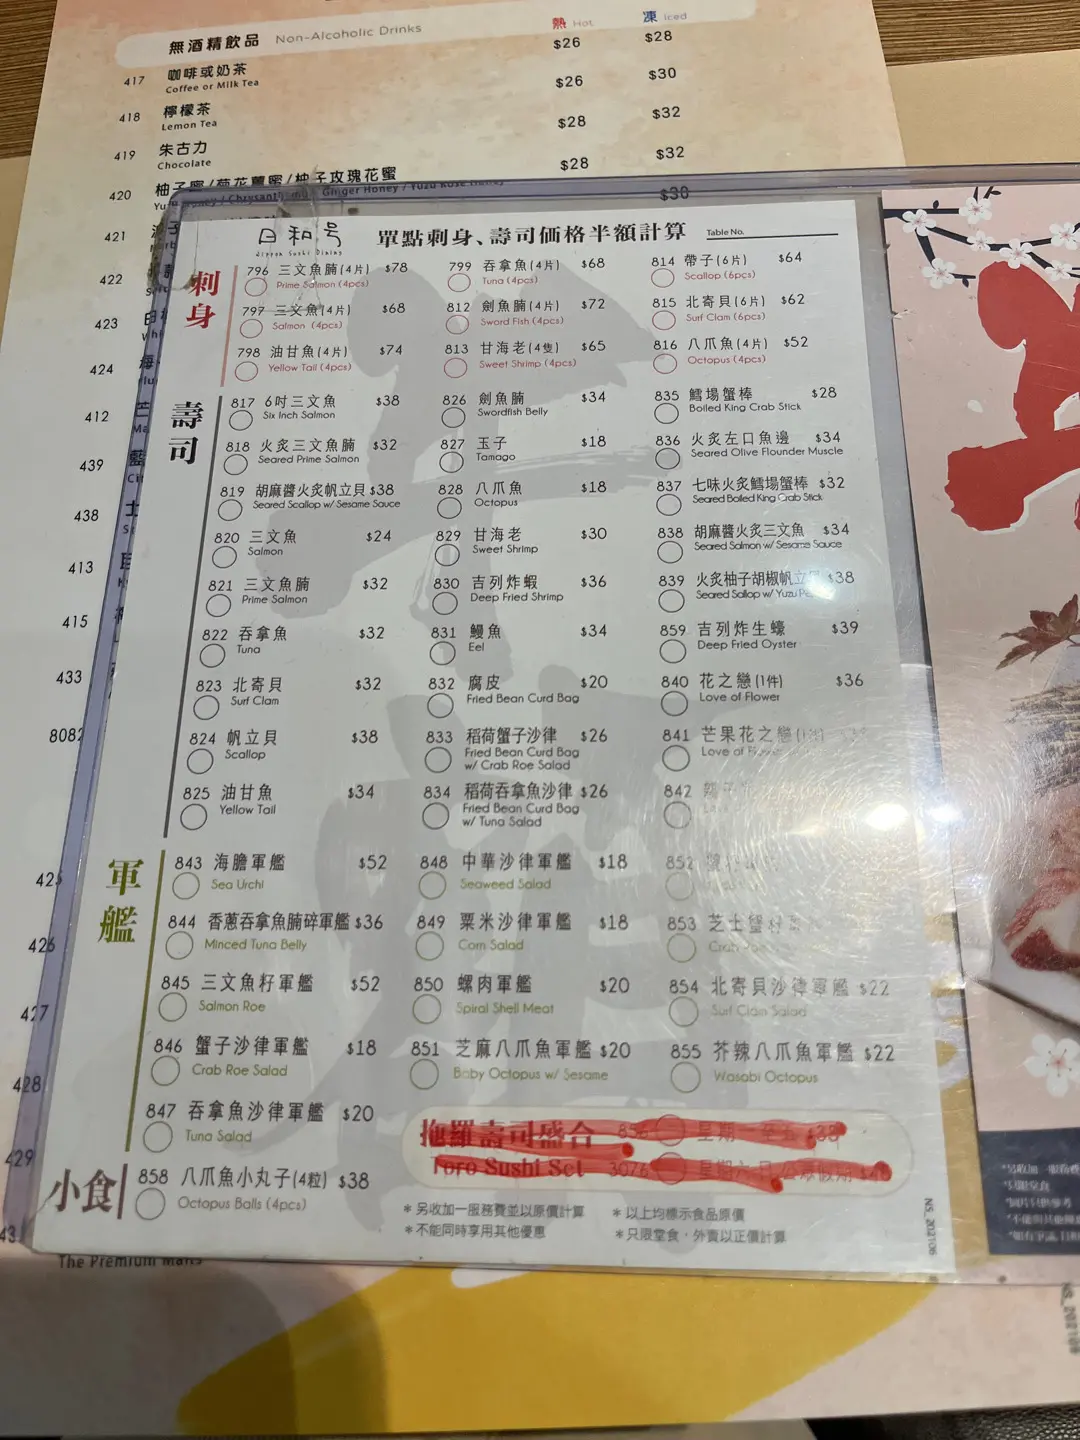 無酒精飲品 Non-Alcoholic Drinks
熱 Hot
凍 Iced
$26
$28
417 咖啡或奶茶
Coffee or Milk Tea
$26
$30
418 檸檬茶
Lemon Tea
$28
$32
419 朱古力
Chocolate
$28
$32
420 柚子蜜/菊花薑蜜/柚子玫瑰花蜜
Ginger Honey / Yuzu Rose Honey
$30
421
422
423
424
412
439
438
413
415
433
8082
425
426
427
428
429
The Premium Malts
日和号
Nippon Sushi Dining
單點刺身、壽司價格半額計算
Table No.
刺身
796 三文魚腩(4片) $78
Prime Salmon (4pcs)
797 三文魚(4片) $68
Salmon (4pcs)
798 油甘魚(4片) $74
Yellow Tail (4pcs)
799 吞拿魚(4片) $68
Tuna (4pcs)
812 劍魚腩(4片) $72
Sword Fish (4pcs)
813 甘海老(4隻) $65
Sweet Shrimp (4pcs)
814 帶子(6片) $64
Scallop (6pcs)
815 北寄貝(6片) $62
Surf Clam (6pcs)
816 八爪魚(4片) $52
Octopus (4pcs)
壽司
817 6吋三文魚 $38
Six Inch Salmon
818 火炙三文魚腩 $32
Seared Prime Salmon
819 胡麻醬火炙帆立貝 $38
Seared Scallop w/ Sesame Sauce
820 三文魚 $24
Salmon
821 三文魚腩 $32
Prime Salmon
822 吞拿魚 $32
Tuna
823 北寄貝 $32
Surf Clam
824 帆立貝 $38
Scallop
825 油甘魚 $34
Yellow Tail
826 劍魚腩 $34
Swordfish Belly
827 玉子 $18
Tamago
828 八爪魚 $18
Octopus
829 甘海老 $30
Sweet Shrimp
830 吉列炸蝦 $36
Deep Fried Shrimp
831 鰻魚 $34
Eel
832 腐皮 $20
Fried Bean Curd Bag
833 稻荷蟹子沙律 $26
Fried Bean Curd Bag
w/ Crab Roe Salad
834 稻荷吞拿魚沙律 $26
Fried Bean Curd Bag
w/ Tuna Salad
835 鱈場蟹棒 $28
Boiled King Crab Stick
836 火炙左口魚邊 $34
Seared Olive Flounder Muscle
837 七味火炙鱈場蟹棒 $32
Seared Boiled King Crab Stick
838 胡麻醬火炙三文魚 $34
Seared Salmon w/ Sesame Sauce
839 火炙柚子胡椒帆立 $38
Seared Sallop w/ Yuzu
859 吉列炸生蠔 $39
Deep Fried Oyster
840 花之戀(1件) $36
Love of Flower
841 芒果花之戀(1件)
Love of
842
軍艦
843 海膽軍艦 $52
Sea Urchi
844 香蔥吞拿魚腩碎軍艦 $36
Minced Tuna Belly
845 三文魚籽軍艦 $52
Salmon Roe
846 蟹子沙律軍艦 $18
Crab Roe Salad
847 吞拿魚沙律軍艦 $20
Tuna Salad
848 中華沙律軍艦 $18
Seaweed Salad
849 粟米沙律軍艦 $18
Corn Salad
850 螺肉軍艦 $20
Spiral Shell Meat
851 芝麻八爪魚軍艦 $20
Baby Octopus w/ Sesame
852
853 芝士蟹籽
Crab
854 北寄貝沙律軍艦 $22
Surf Clam Salad
855 芥辣八爪魚軍艦 $22
Wasabi Octopus
拖羅壽司盛合 856 星期一至五 $38
Toro Sushi Set 3076
小食
858 八爪魚小丸子(4粒) $38
Octopus Balls (4pcs)
*另收加一服務費並以原價計算
*以上均標示食品原價
*不能同時享用其他優惠
*只限堂食，外賣以正價計算
NS_202106